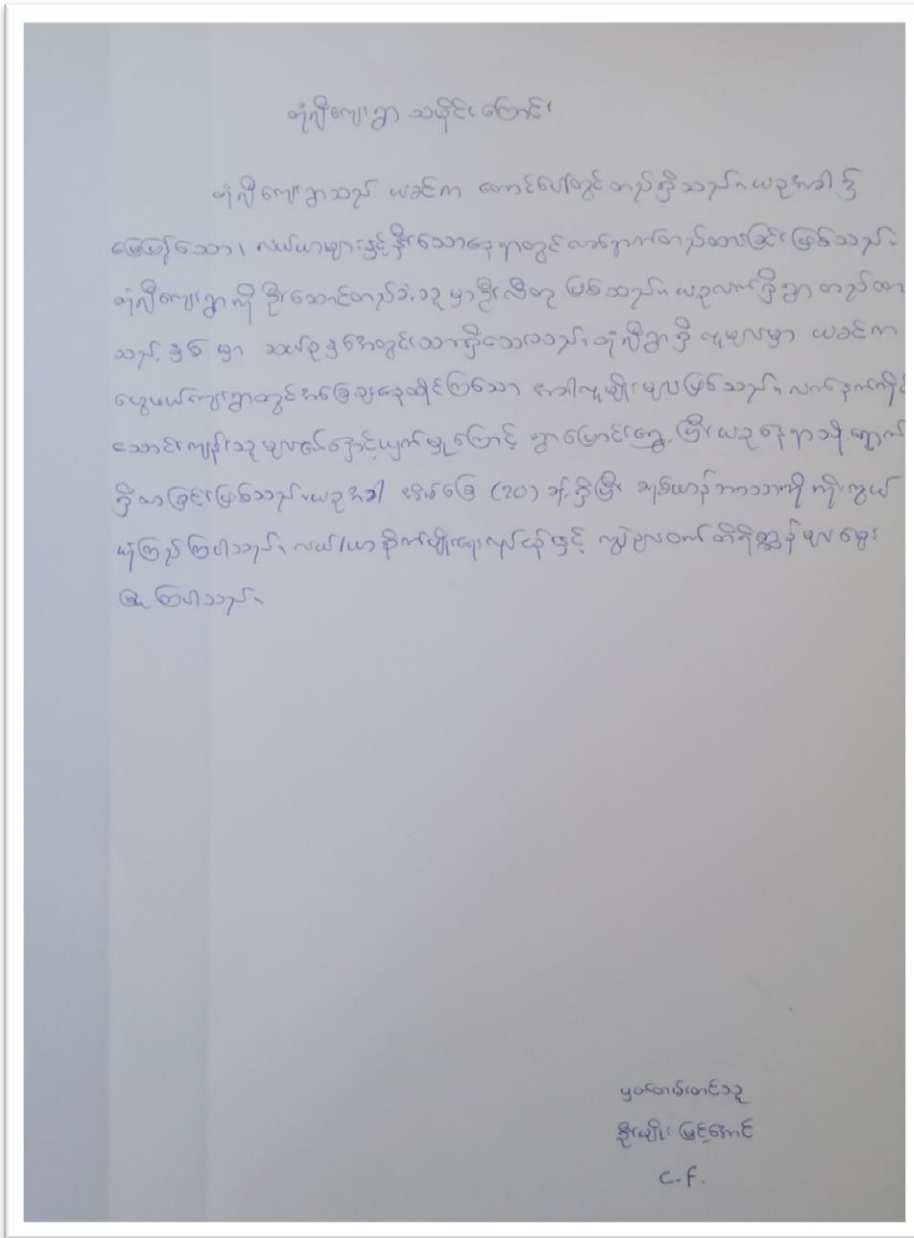 တုံလီကျေးရွာ သမိုင်းကြောင်း
တုံလီကျေးရွာသည် ယခင်က တောင်ပေါ်တွင်တည်ရှိသည်။ ယခုအခါ ၌
မြေပြန့်သော၊ လယ်ယာများနှင့်နီးသောနေရာတွင် လာရောက်တည်ထားခြင်းဖြစ်သည်။
တုံလီကျေးရွာကို ဦးဆောင်တည်ခဲ့သူမှာ ဦးလီတူ ဖြစ်သည်။ ယခုလက်ရှိရွာ တည်ထာ
သည့်နှစ် မှာ ဆယ်စုနှစ်အတွင်းသာရှိသေးသည်။ တုံလီရွာရှိ လူများမှာ ယခင်က
ကျေးရွာတွင်အခြေချနေထိုင်ကြသော အာခါလူမျိုးများဖြစ်သည်။ လက်နက်ကိုင်
သောင်းကျန်းသူများ၏နှောင့်ယှက်မှုကြောင့် ရွာပြောင်းရွှေ့ပြီး ယခုနေရာသို့ရောက်
ရှိလာခြင်းဖြစ်သည်။ ယခုအခါ အိမ်ခြေ (၃၀) ခန့်ရှိပြီး ခရစ်ယာန်ဘာသာကို ကိုးကွယ်
ယုံကြည်ကြပါသည်။ လယ်/ယာစိုက်ပျိုးရေးလုပ်ငန်းနှင့် ကျွဲ/နွား၊ဝက် တိရိစ္ဆာန်များမွေး
မြူကြပါသည်။
မှတ်တမ်းတင်သူ
စိုးမျိုးမြင့်အောင်
C.F.